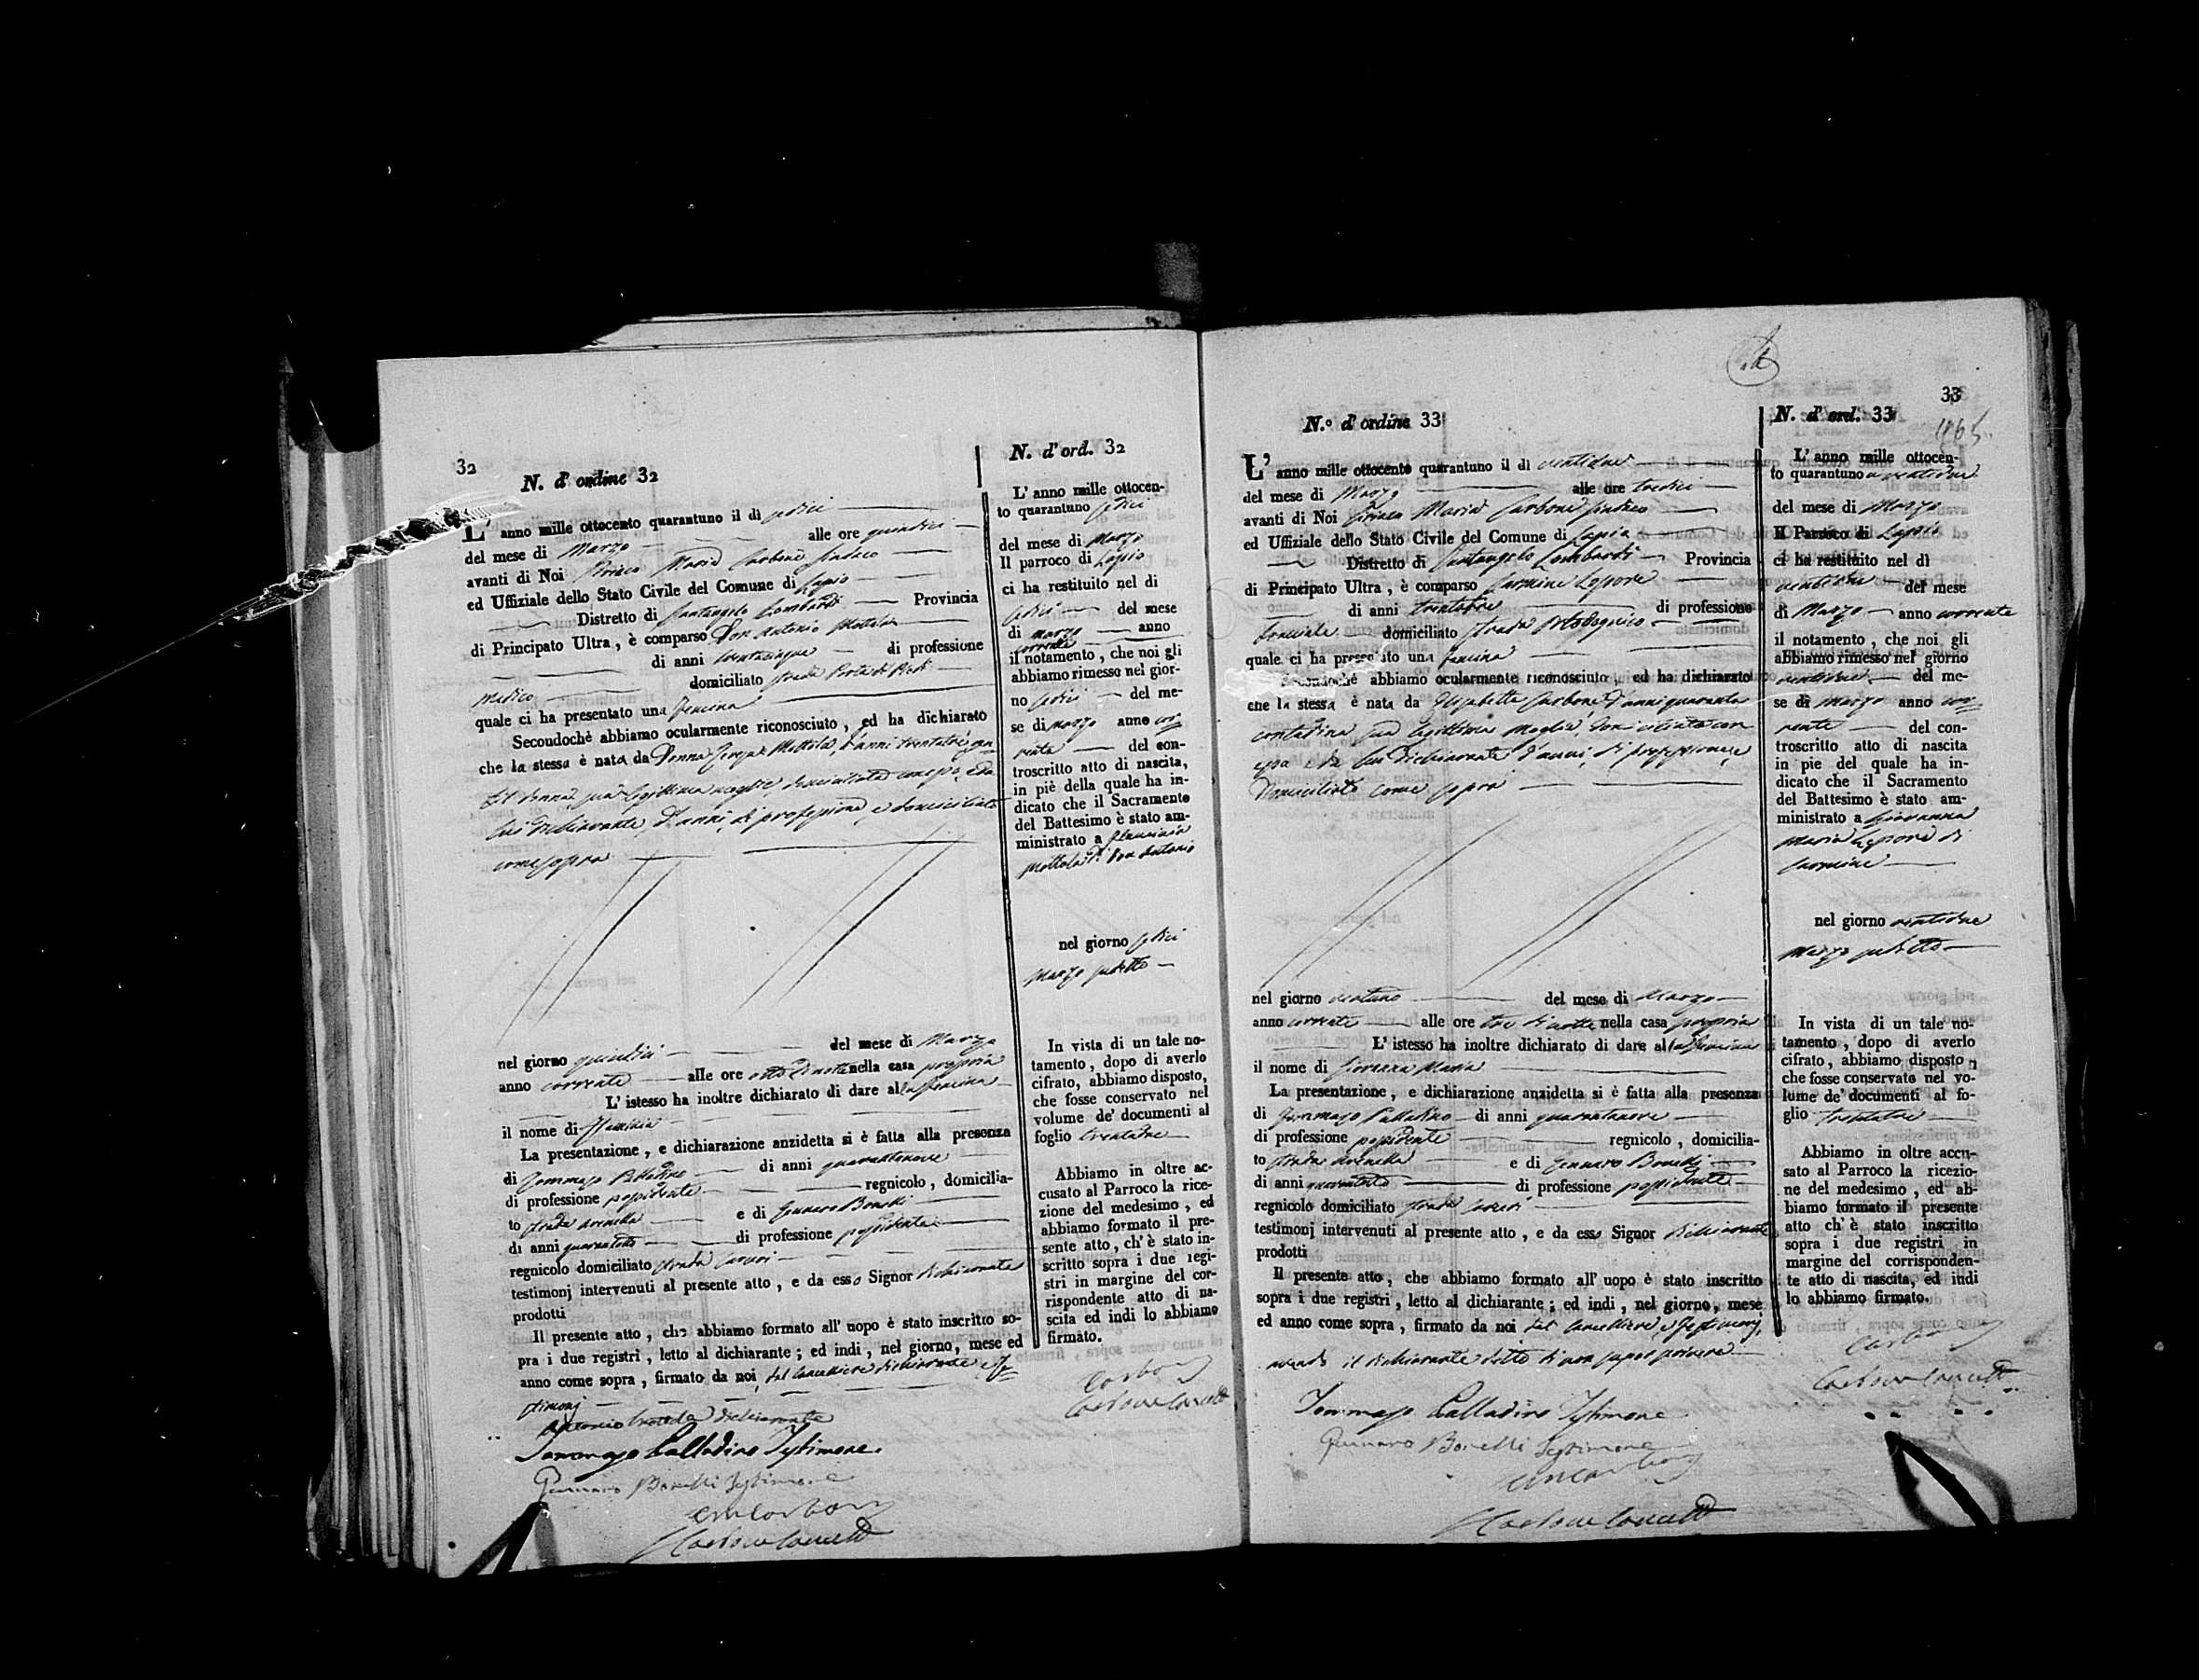 32
N. d' ordine 32
L' anno mille ottocento quarantuno il dì sedici
del mese di Marzo alle ore quindici
avanti di Noi Maria Carbone Sindaco
ed Uffiziale dello Stato Civile del Comune di Lapio
Distretto di Santangelo Lombardi Provincia
di Principato Ultra, è comparso Don Antonio Mottola
di anni trentacinque di professione
Medico domiciliato strada
quale ci ha presentato una femina
Secondochè abbiamo ocularmente riconosciuto, ed ha dichiarato
che la stessa è nata da Donna Mottola, d'anni trentatrè
sua legittima moglie domiciliata
lui dichiarante, d'anni, di professione, e domiciliato
come sopra
nel giorno quindici del mese di Marzo
anno corrente alle ore otto di notte nella casa propria
L' istesso ha inoltre dichiarato di dare alla femina
il nome di Flaminia
La presentazione, e dichiarazione anzidetta si è fatta alla presenza
di Tommaso Palladino di anni quarantanove
di professione possidente regnicolo, domicilia-
to strada Avenella e di Gennaro Bonelli
di anni quarantotto di professione possidente
regnicolo domiciliato strada
testimonj intervenuti al presente atto, e da esso Signor dichiarante
prodotti
Il presente atto, che abbiamo formato all' uopo è stato inscritto so-
pra i due registri, letto al dichiarante; ed indi, nel giorno, mese ed
anno come sopra, firmato da noi, dal Cancelliere dichiarante e Te-
stimonj
Antonio Mottola dichiarante
Tommaso Palladino Testimone.
Gennaro Bonelli Testimone
Carbone
N. d' ord. 32
L' anno mille ottocen-
to quarantuno sedici
del mese di Marzo
Il parroco di Lapio
ci ha restituito nel dì
sedici del mese
di marzo anno
corrente
il notamento, che noi gli
abbiamo rimesso nel gior-
no sedici del me-
se di marzo anno cor-
rente del con-
troscritto atto di nascita,
in piè della quale ha in-
dicato che il Sacramento
del Battesimo è stato am-
ministrato a Flaminia
Mottola di Don Antonio
nel giorno sedici
Marzo suddetto
In vista di un tale no-
tamento, dopo di averlo
cifrato, abbiamo disposto,
che fosse conservato nel
volume de' documenti al
foglio trentadue
Abbiamo in oltre ac-
cusato al Parroco la rice-
zione del medesimo, ed
abbiamo formato il pre-
sente atto, ch' è stato in-
scritto sopra i due regi-
stri in margine del cor-
rispondente atto di na-
scita ed indi lo abbiamo
firmato.
Carbone
33
N.º d' ordine 33
L' anno mille ottocento quarantuno il dì ventidue
del mese di Marzo alle ore tredici
avanti di Noi Maria Carbone Sindaco
ed Uffiziale dello Stato Civile del Comune di Lapio
Distretto di Santangelo Lombardi Provincia
di Principato Ultra, è comparso Carmine Lepore
di anni trentatre di professione
bracciale domiciliato strada
quale ci ha presentato una femina
Secondochè abbiamo ocularmente riconosciuto, ed ha dichiarato
che la stessa è nata da Elisabetta Carbone d'anni quaranta
contadina sua legittima moglie, domiciliata con
essa e da lui dichiarante d'anni, di professione, e
domiciliato come sopra
nel giorno ventuno del mese di Marzo
anno corrente alle ore tre di notte nella casa propria
L' istesso ha inoltre dichiarato di dare alla femina
il nome di Giovanna Maria
La presentazione, e dichiarazione anzidetta si è fatta alla presenza
di Tommaso Palladino di anni quarantanove
di professione possidente regnicolo, domicilia-
to strada Avenella e di Gennaro Bonelli
di anni quarantotto di professione possidente
regnicolo domiciliato strada
testimonj intervenuti al presente atto, e da esso Signor dichiarante
prodotti
Il presente atto, che abbiamo formato all' uopo è stato inscritto
sopra i due registri, letto al dichiarante; ed indi, nel giorno, mese
ed anno come sopra, firmato da noi dal Cancelliere, e Testimonj,
avendo il dichiarante detto di non saper scrivere
Tommaso Palladino Testimone
Gennaro Bonelli Testimone
Carbone
N. d' ord. 33
465
L' anno mille ottocen-
to quarantuno ventidue
del mese di Marzo
Il Parroco di Lapio
ci ha restituito nel dì
ventidue del mese
di Marzo anno corrente
il notamento, che noi gli
abbiamo rimesso nel giorno
ventidue del me-
se di Marzo anno cor-
rente del con-
troscritto atto di nascita
in piè del quale ha in-
dicato che il Sacramento
del Battesimo è stato am-
ministrato a Giovanna
Maria Lepore di
Carmine
nel giorno ventidue
Marzo suddetto
In vista di un tale no-
tamento, dopo di averlo
cifrato, abbiamo disposto,
che fosse conservato nel vo-
lume de' documenti al fo-
glio trentatre
Abbiamo in oltre accu-
sato al Parroco la ricezio-
ne del medesimo, ed ab-
biamo formato il presente
atto ch' è stato inscritto
sopra i due registri in
margine del corrisponden-
te atto di nascita, ed indi
lo abbiamo firmato.
Carbone